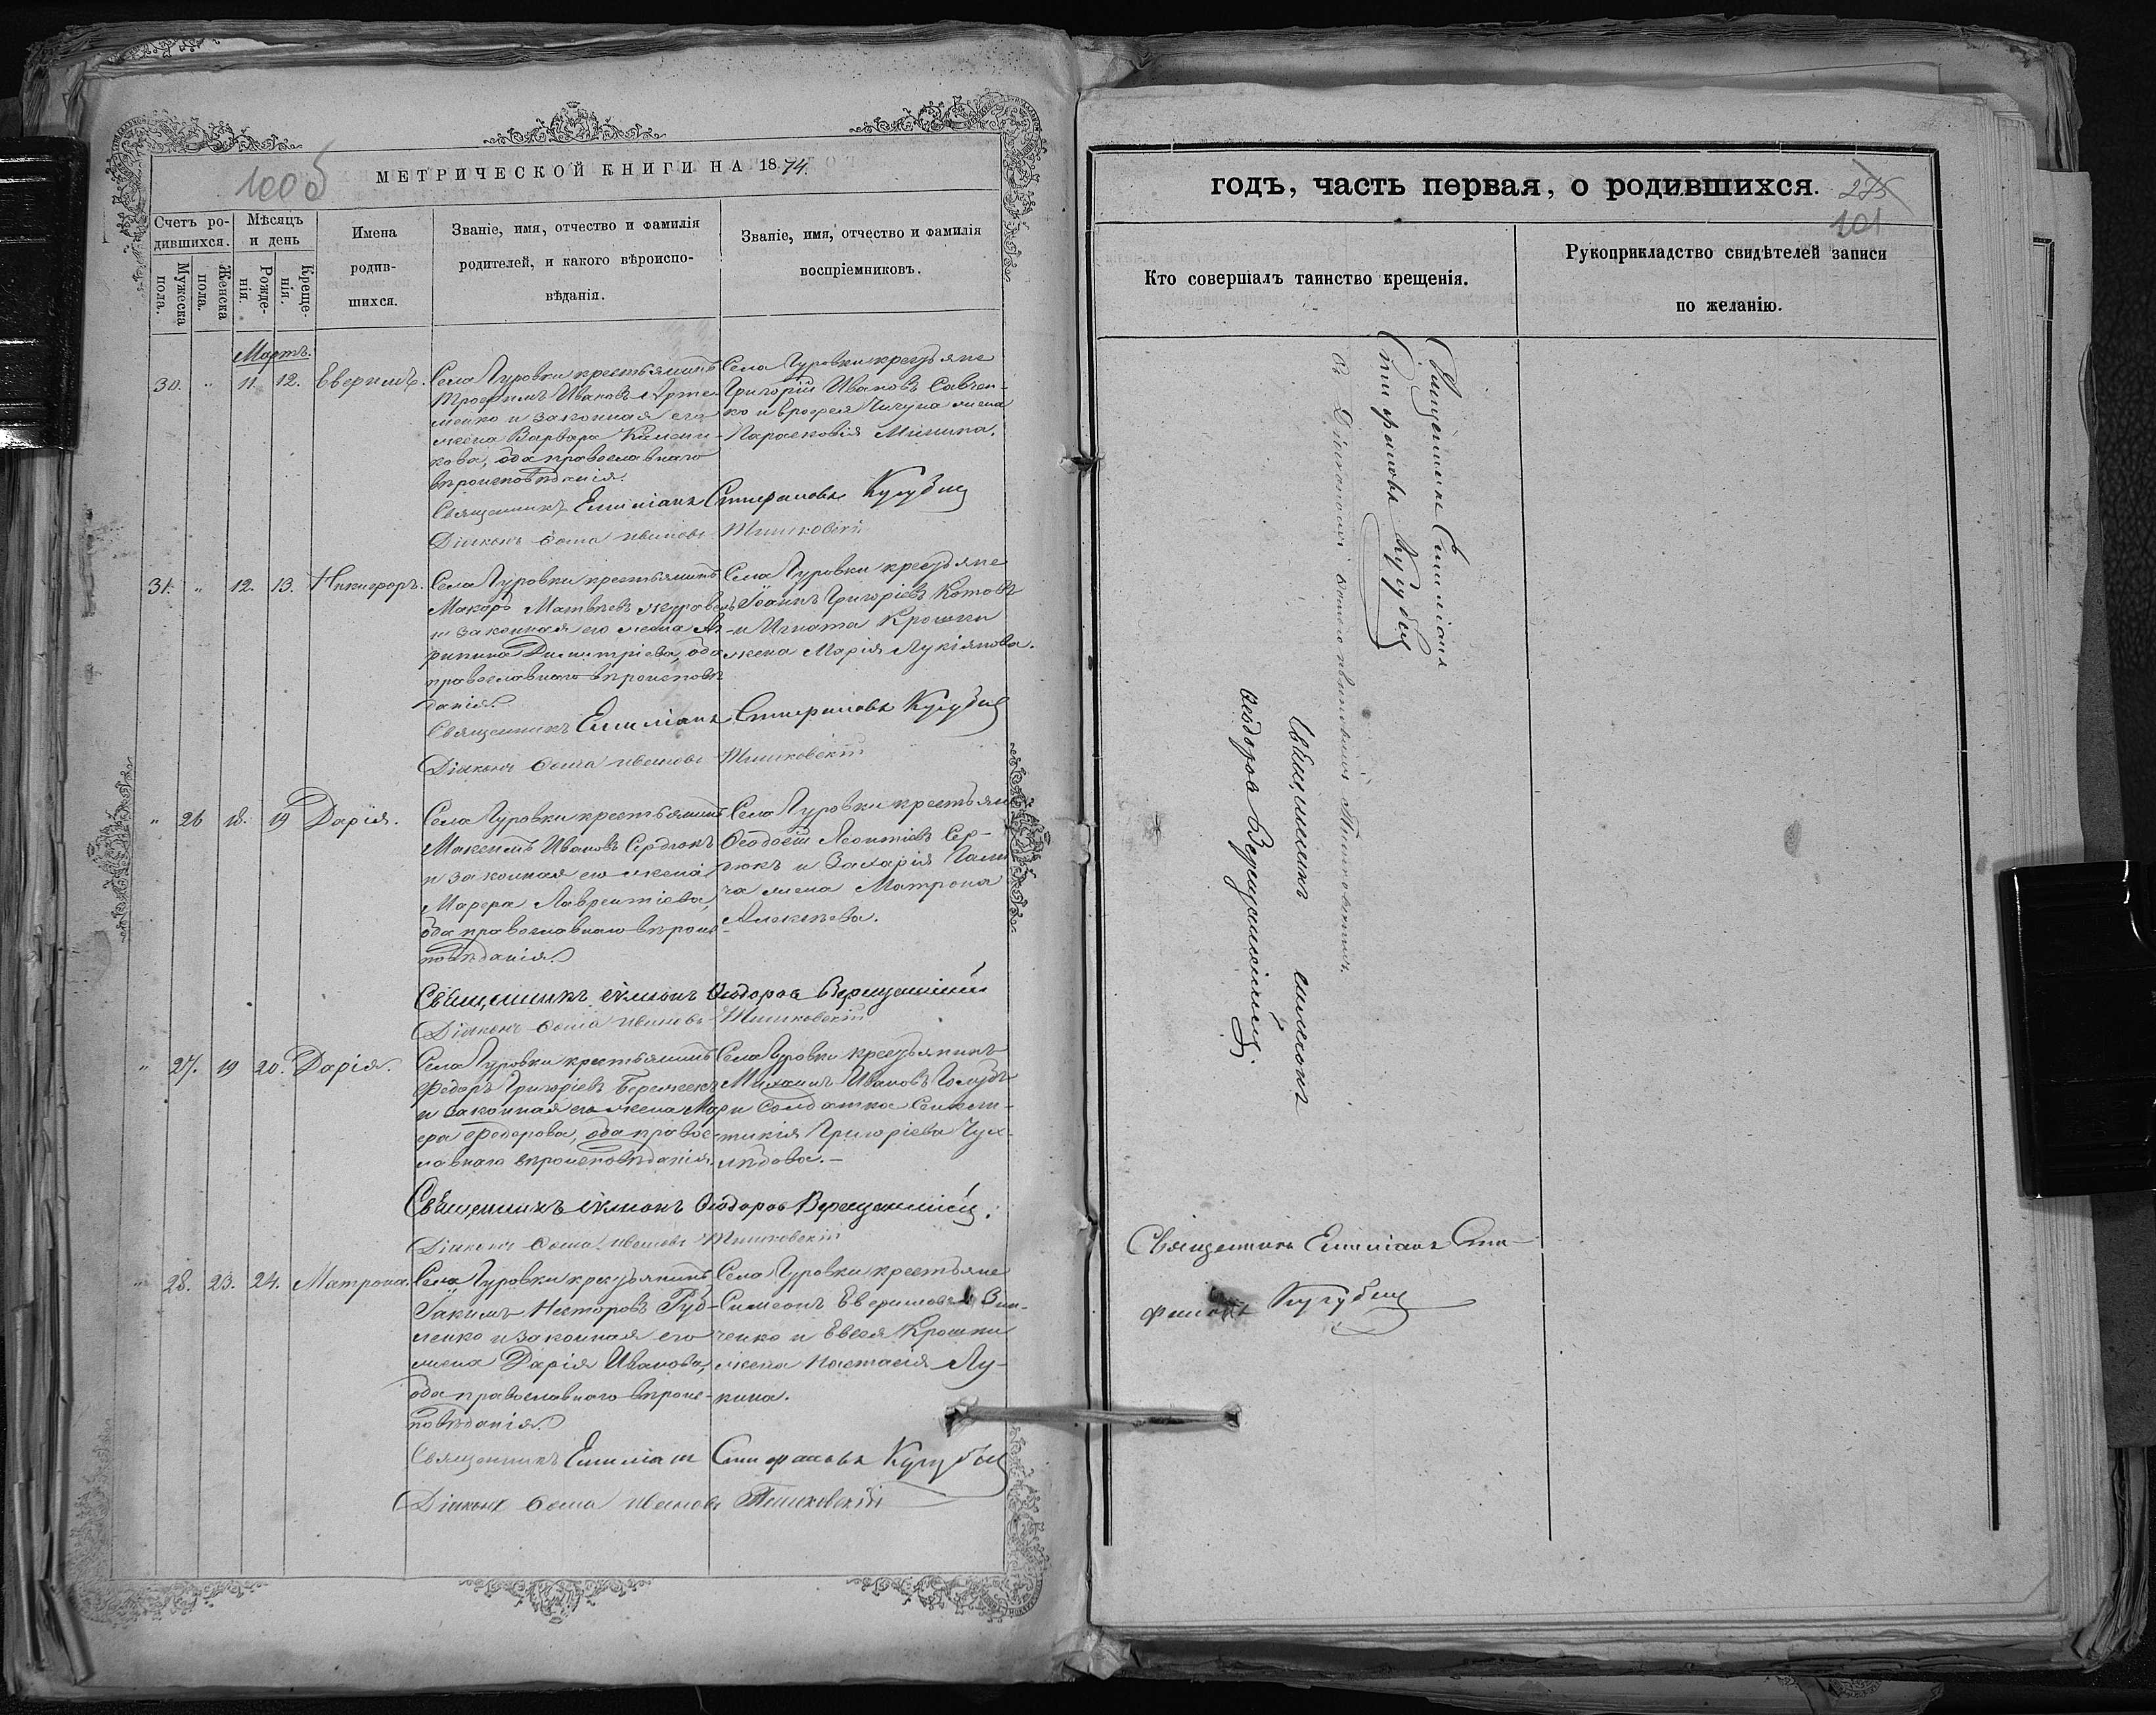 100об
МЕТРИЧЕСКОЙ КНИГИ НА 1874
Счетъ ро-
дившихся.
Мѣсяцъ
и день
Мужеска
пола.
Женска
пола.
Рожде-
нія.
Креще-
нія.
Имена
родив-
шихся.
Званіе, имя, отчество и фамилія
родителей, и какого вѣроиспо-
вѣданія.
Званіе, имя, отчество и фамилія
воспріемниковъ.
Мартъ.
30. " 11. 12.
Села Гуровки крестьянинъ
Трофимъ Ивановъ Арте-
менко и законная его
жена Варвара
кова, оба православнаго
вѣроисповѣданія.
Села Гуровки крестьяне
Григорій Ивановъ Савчен-
ко и жена
Парасковія Минина.
Священникъ Емиліанъ Стефановъ
Діаконъ Ѳома Ивановъ
31. " 12. 13. Никифоръ.
Села Гуровки крестьянинъ
Макаръ Матвѣевъ Журавель
и законная его жена Аг-
рипина Димитріева, оба
православнаго вѣроисповѣ
данія.
Села Гуровки крестьяне
Іоаннъ Григоріевъ Котовъ
и Игната Крошки
жена Марія Лукіянова.
Священникъ Емиліанъ Стефановъ
Діаконъ Ѳома Ивановъ
" 26 18. 19 Дарія.
Села Гуровки крестьянинъ
Максимъ Ивановъ Сердюкъ
и законная его жена
Марфа Лаврентіева,
оба православнаго вѣроис
повѣданія.
Села Гуровки крестьяне
Ѳеодосій Леонтіевъ Сер-
дюкъ и Захарія
жена Матрона
Алексѣева.
Священникъ Симеонъ Ѳеодоровъ
Діаконъ Ѳома Ивановъ
" 27. 19 20. Дарія.
Села Гуровки крестьянинъ
Федоръ Григоріевъ
и законная его жена Мар
фа Федорова, оба правос-
лавнаго вѣроисповѣданія.
Села Гуровки крестьянинъ
Михаилъ Ивановъ Голубъ
и солдатка Синкли-
тикія Григоріева
Священникъ Симеонъ Ѳеодоровъ
Діаконъ Ѳома Ивановъ
" 28. 23. 24. Матрона.
Села Гуровки крестьянинъ
Іакимъ Несторовъ Руд-
ченко и законная его
жена Дарія Иванова,
оба православнаго вѣроис-
повѣданія.
Села Гуровки крестьяне
Симеонъ Евфимовъ Зин-
ченко и Евсея Крошки
жена Настасія Лу-
кина.
Священникъ Емиліанъ Стефановъ
Діаконъ Ѳома Ивановъ
годъ, часть первая, о родившихся.
275
101
Кто совершалъ таинство крещенія.
Рукоприкладство свидѣтелей записи
по желанію.
Священникъ Емиліанъ
Стефановъ
съ Діакономъ
Священникъ Симеонъ
Ѳеодоровъ
Священникъ Емиліанъ Сте-
фановъ